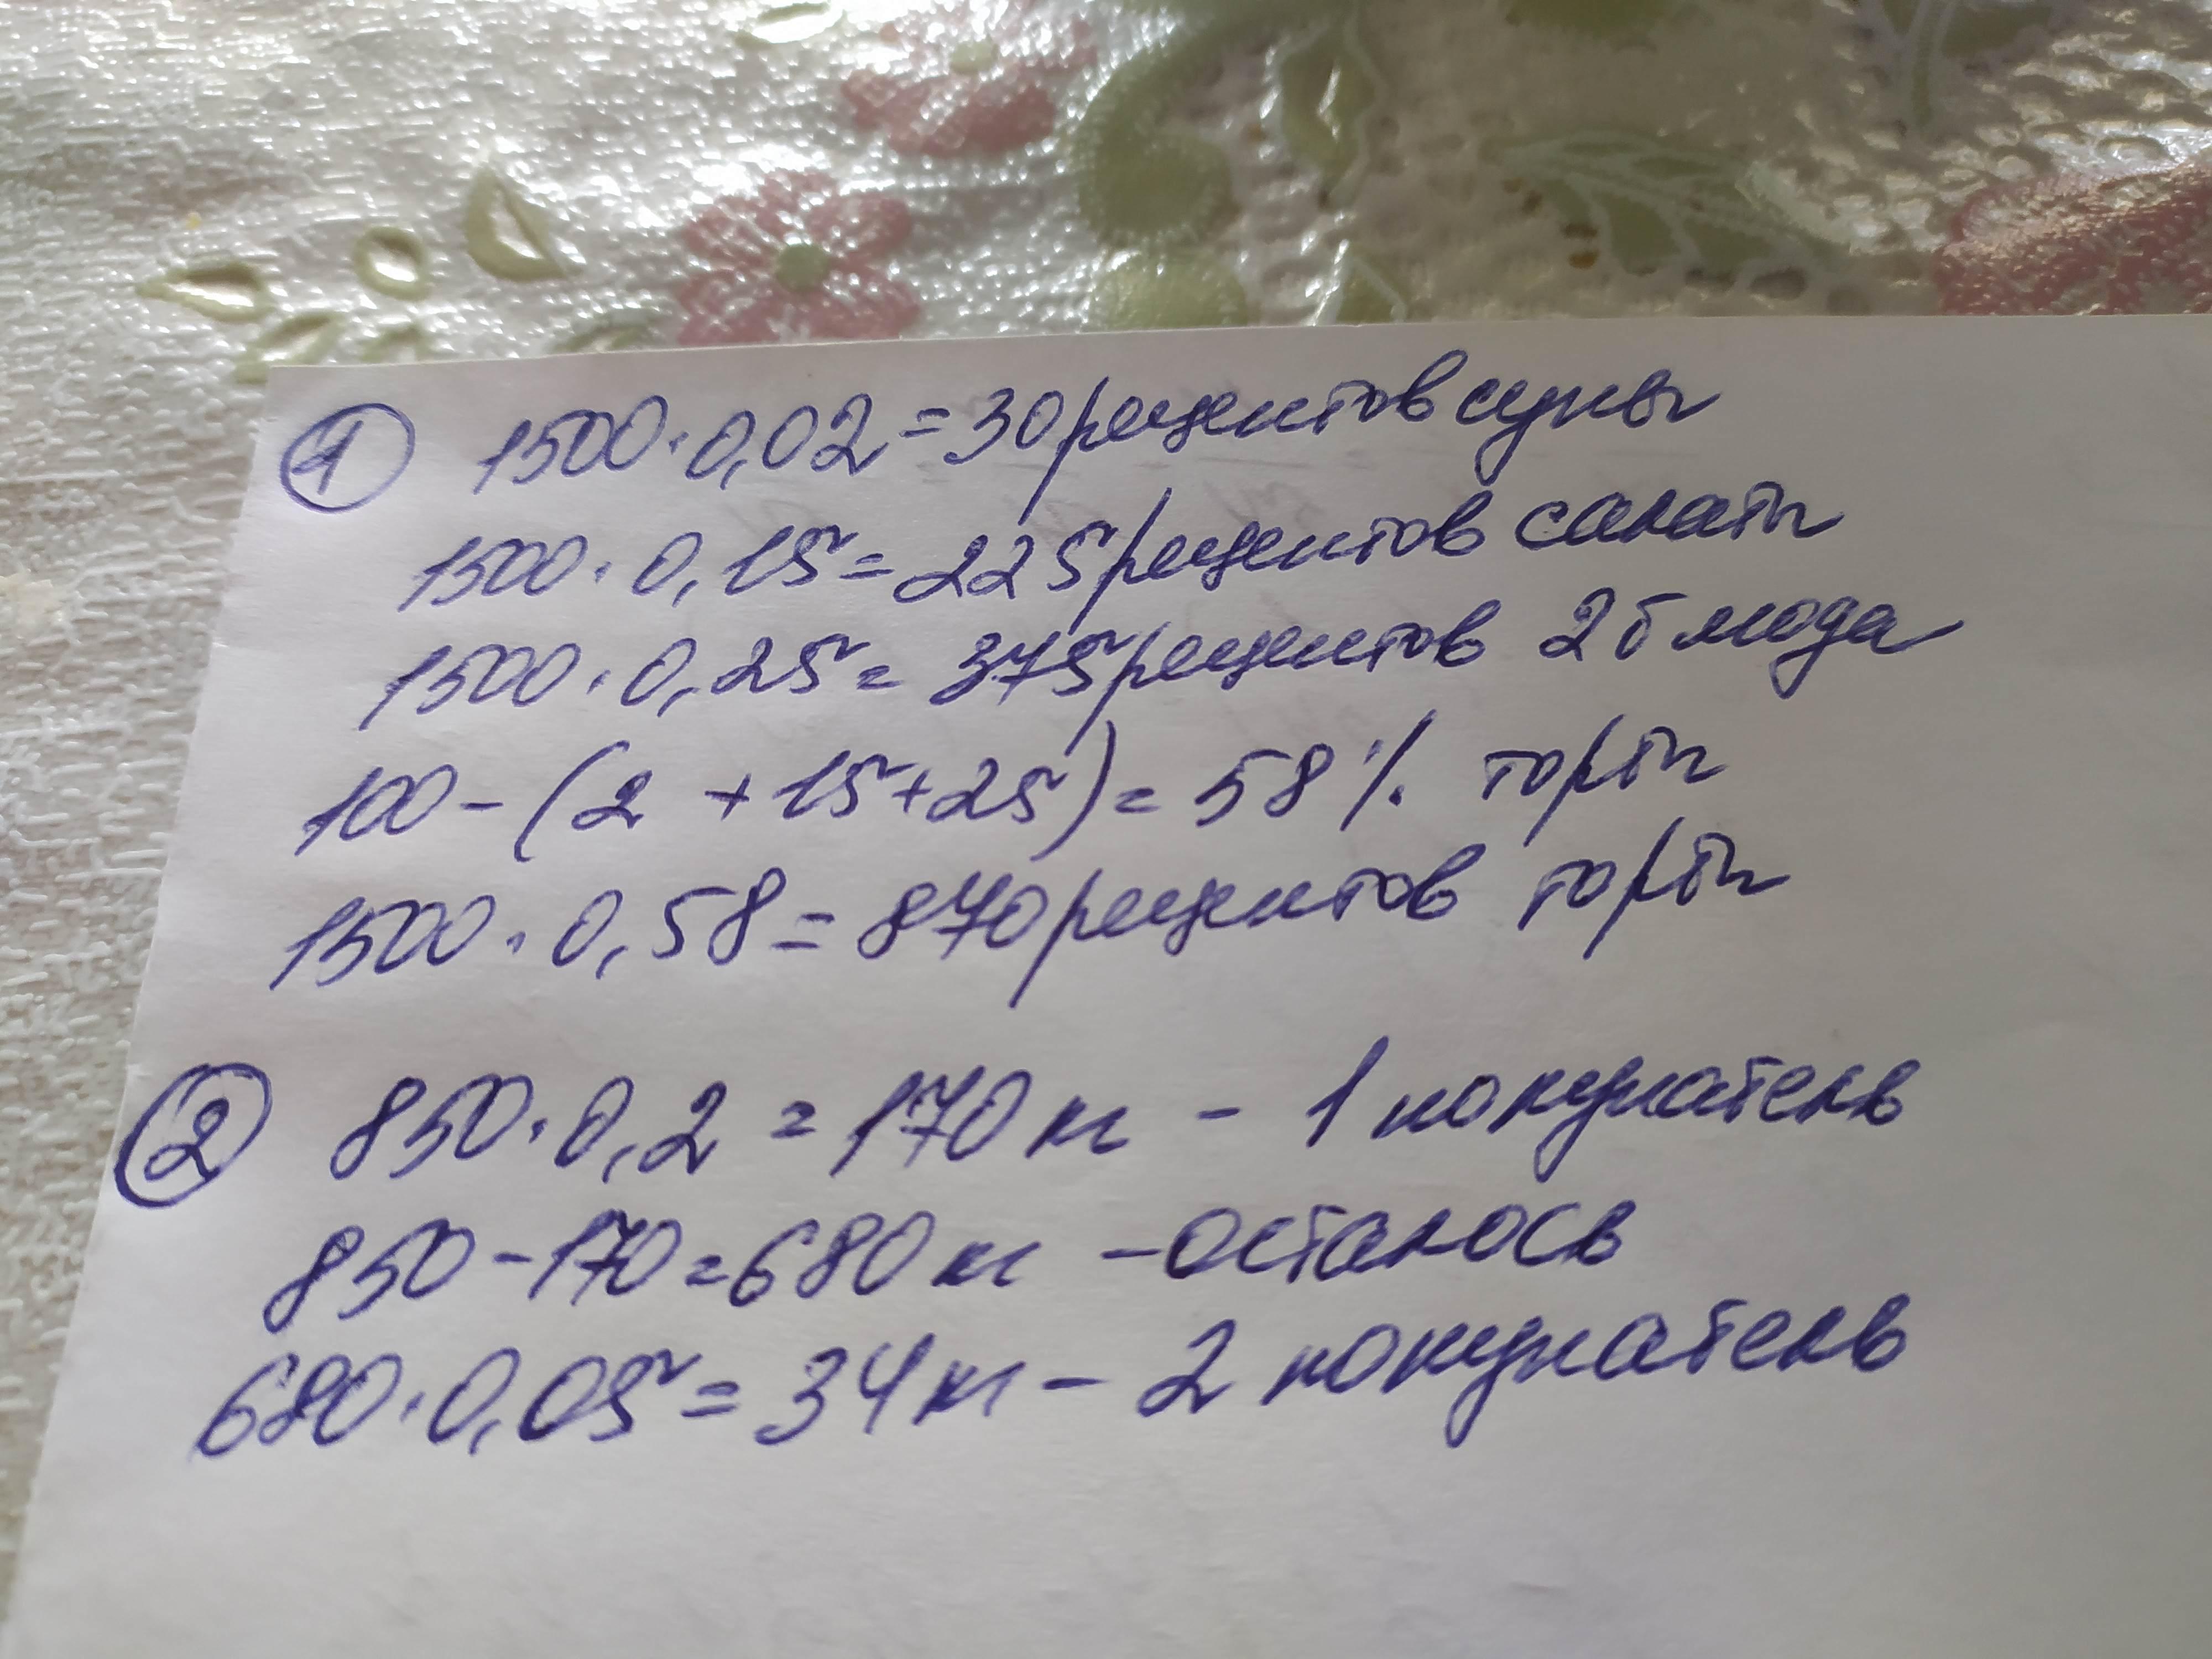 ① 1500·0,02=30 рецептов супы
1500·0,15=225 рецептов салаты
1500·0,25=375 рецептов 2 блюда
100-(2 +15+25)=58% торты
1500·0,58=870 рецептов торты
② 850·0,2=170 кг - 1 покупатель
850-170=680 кг -осталось
680·0,05=34 кг - 2 покупатель